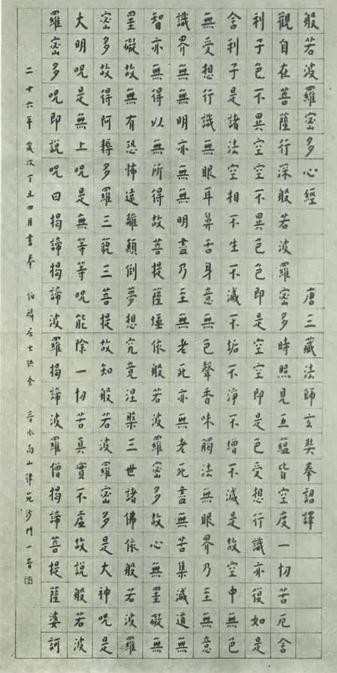 般若波羅密多心經 唐三藏法師玄奘奉詔譯
觀自在菩薩行深般若波羅密多時照見五蘊皆空度一切苦厄舍
利子色不異空空不異色色即是空空即是色受想行識亦復如是
舍利子是諸法空相不生不滅不垢不淨不增不減是故空中無色
無受想行識無眼耳鼻舌身意無色聲香味觸法無眼界乃至無意
識界無無明亦無無明盡乃至無老死亦無老死盡無苦集滅道無
智亦無得以無所得故菩提薩埵依般若波羅密多故心無罣礙無
罣礙故無有恐怖遠離顛倒夢想究竟涅槃三世諸佛依般若波羅
密多故得阿耨多羅三藐三菩提故知般若波羅密多是大神呪是
大明呪是無上呪是無等等呪能除一切苦真實不虛故說般若波
羅密多呪即說呪曰揭諦揭諦波羅揭諦波羅僧揭諦菩提薩婆訶
二十六年歲次丁丑四月書奉 居士供養 南山律苑沙門一音